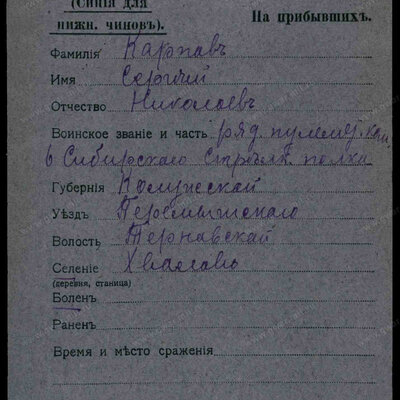 (Синія для
нижн. чиновъ).
На прибывшихъ.
Фамилія Карповъ
Имя Сергий
Отчество Николаевъ
Воинское званіе и часть ряд. пулемет. ком.
6 Сибирскаго Стрелк. полка
Губернія Калужской
Уѣздъ Перемышскаго
Волость
Селеніе Хвалово
(деревня, станица)
Боленъ
Раненъ
Время и мѣсто сраженія